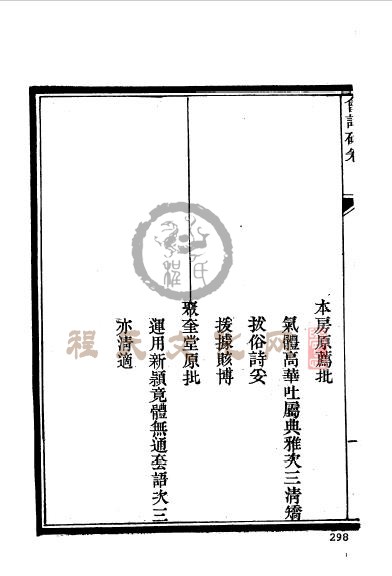 會試硃卷
一
本房原薦批
氣體高華吐屬典雅次三清矯
拔俗詩妥
援據賅博
聚奎堂原批
運用新穎竟體無通套語次三
亦清適
程氏文化网
298